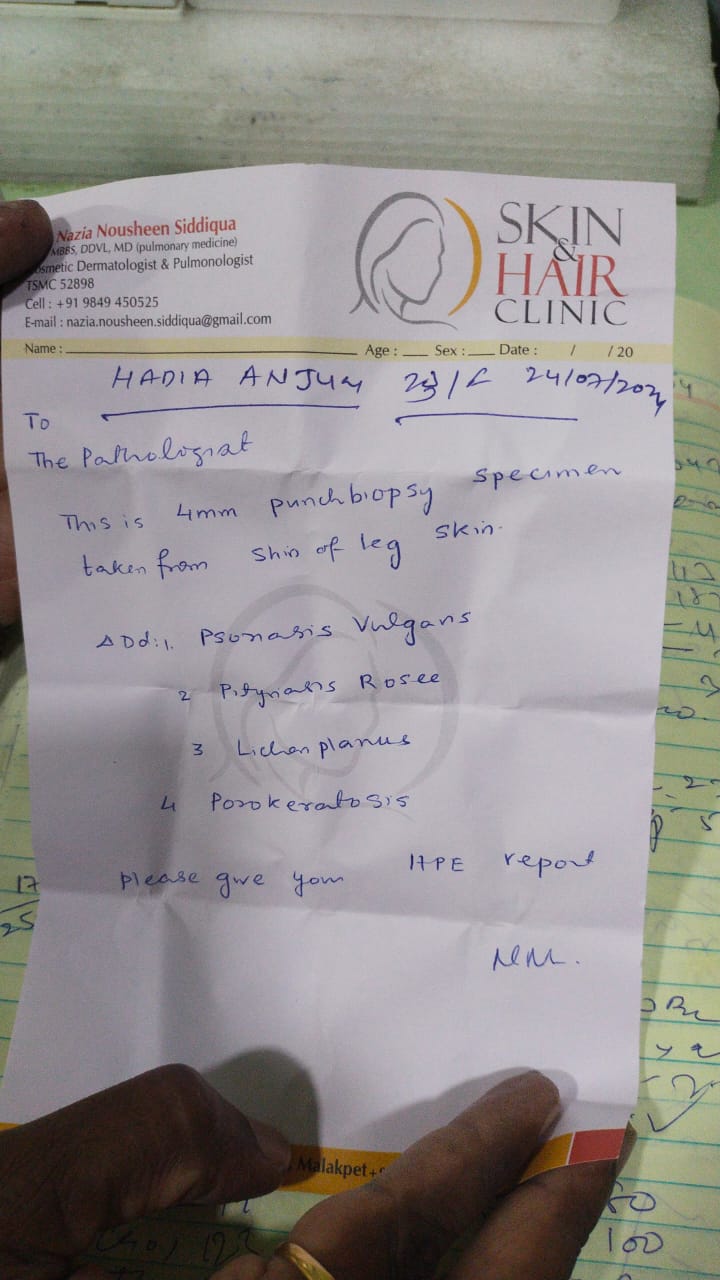 Nazia Nousheen Siddiqua
MBBS, DDVL, MD (pulmonary medicine)
osmetic Dermatologist & Pulmonologist
TSMC 52898
Cell : +91 9849 450525
E-mail : nazia.nousheen.siddiqua@gmail.com
SKIN
&
HAIR
CLINIC
Name : Age : Sex : Date : / / 20
HADIA ANJUM 23/F 24/07/2024
To
The Pathologist
This is 4mm punch biopsy specimen
taken from shin of leg skin.
DDd: 1. Psoriasis Vulgaris
2 Pityriasis Rosee
3 Lichen planus
4 Porokeratosis
please give your HPE report
Malakpet
17
25
60
100